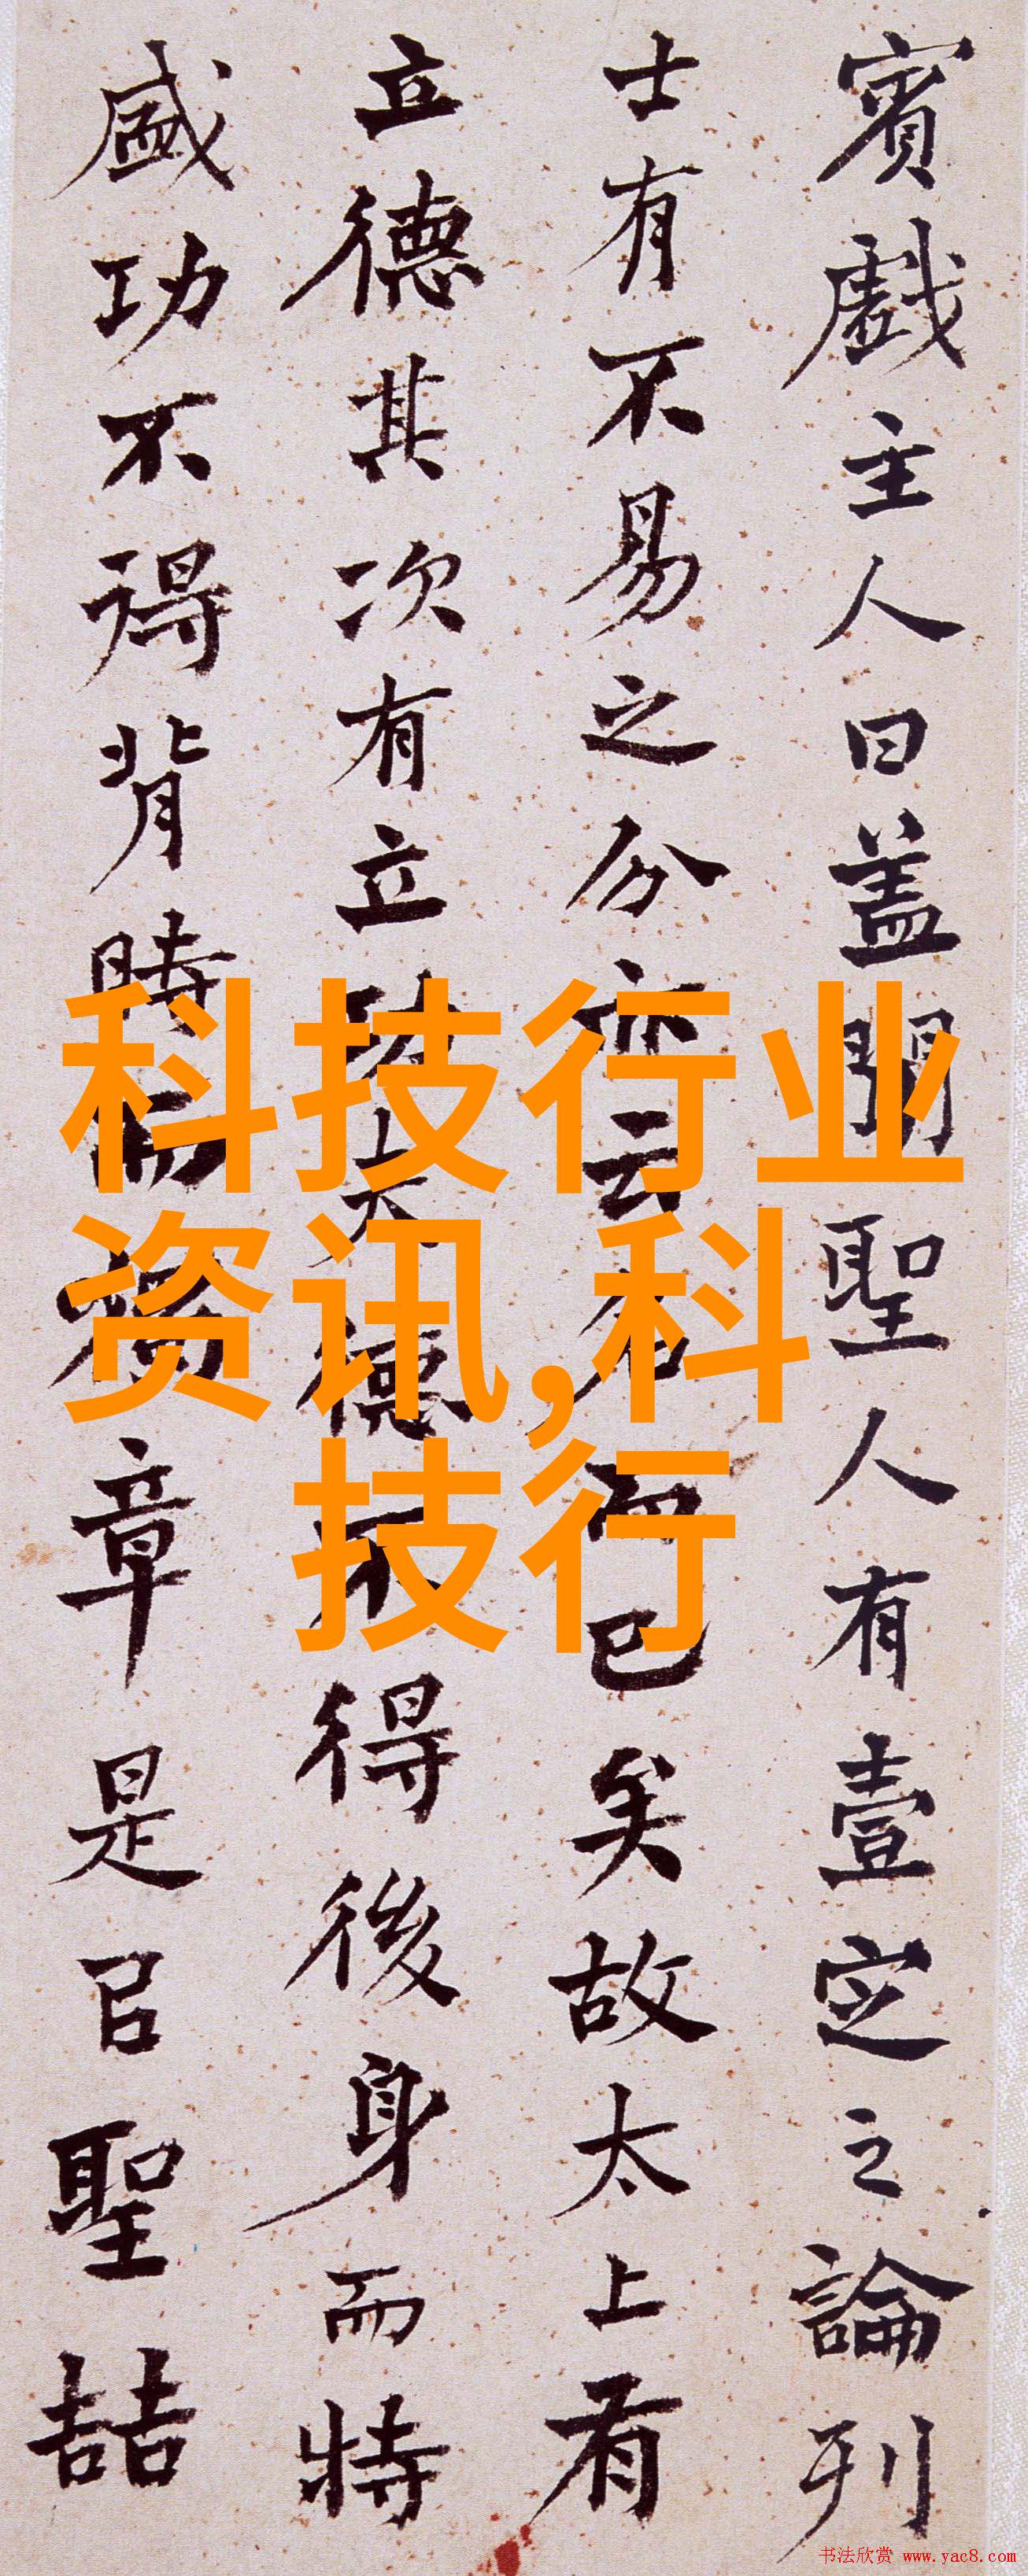 賓戲主人曰盖聞聖人有壹定之論列
士有不易之分亦云名而已矣故太上有
立德其次有立功夫德不得後身而特
盛功不得背時而獨章是㠯聖喆
科技行业
资讯,科
技行
书法欣赏 www.yac8.com